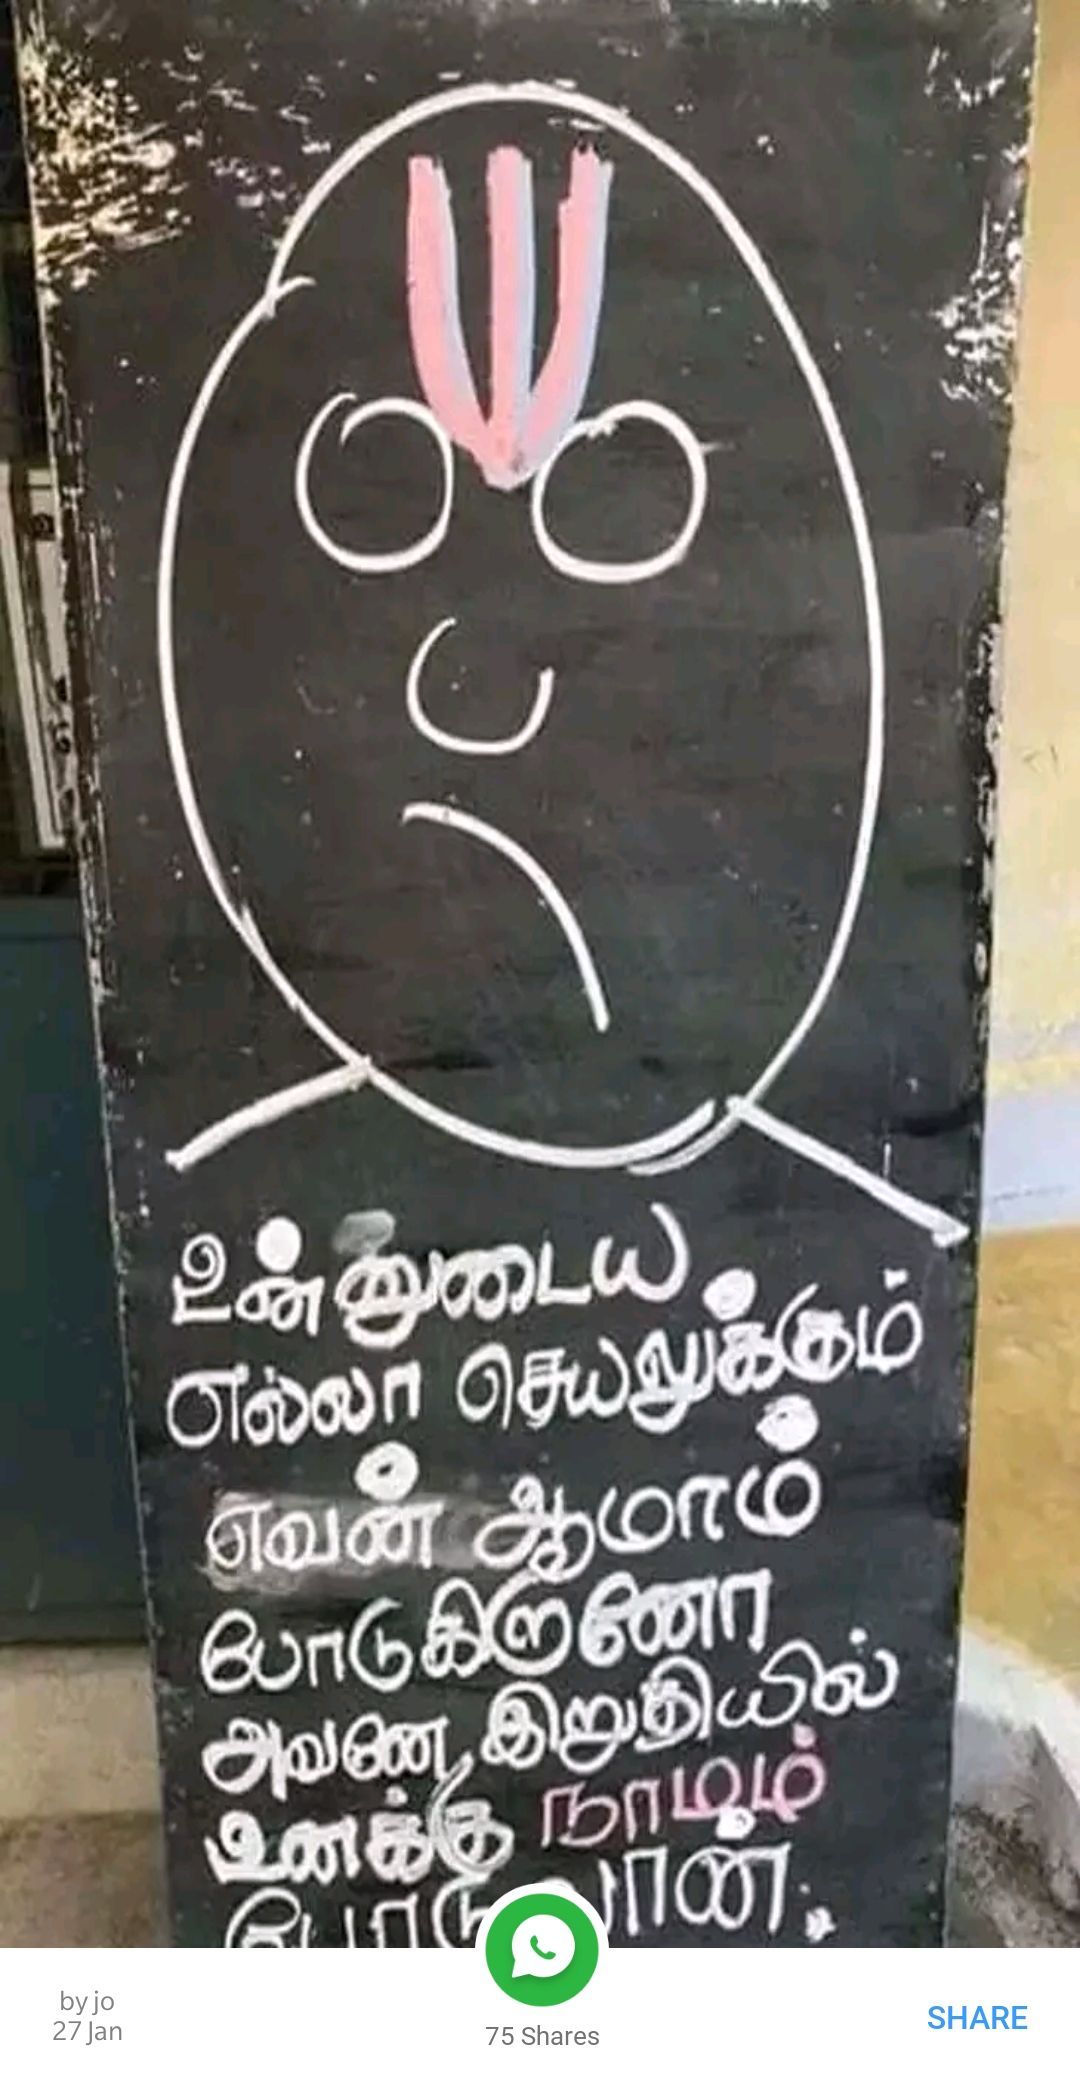 உன்னுடைய
எல்லா செயலுக்கும்
எவன் ஆமாம்
போடுகிறானோ
அவனே இறுதியில்
உனக்கு நாமம்
by jo
27 Jan
75 Shares
SHARE